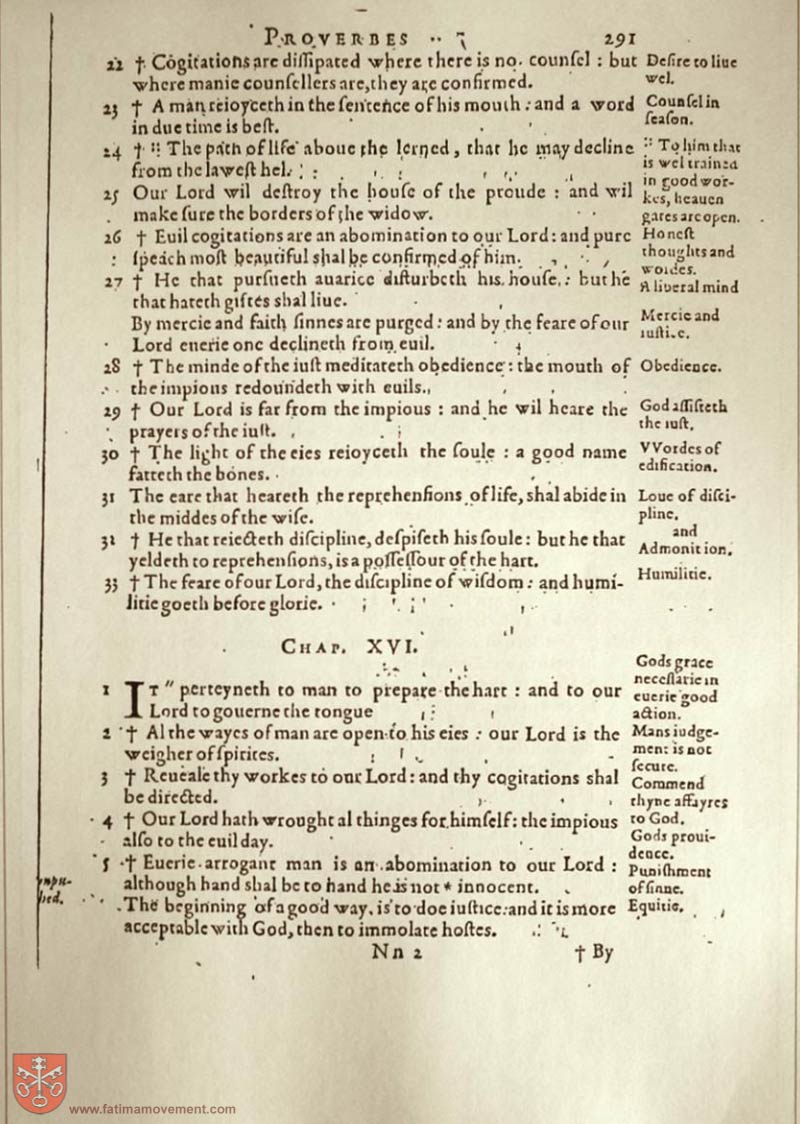 PROVERBES 291
22 † Cogitations are diſſipated where there is no counſel : but
where manie counſellers are, they are confirmed.
23 † A man reioyceth in the ſentence of his mouth : and a word
in due time is beſt.
24 † " The path of life aboue the lerned, that he may decline
from the loweſt hel.
25 Our Lord wil deſtroy the houſe of the proude : and wil
make ſure the borders of the widow.
26 † Euil cogitations are an abomination to our Lord : and pure
ſpeach moſt beautiful shal be confirmed of him.
27 † He that purſueth auarice diſturbeth his houſe : but he
that hateth giftes shal liue.
By mercie and faith ſinnes are purged : and by the feare of our
Lord euerie one declineth from euil.
28 † The minde of the iuſt meditateth obedience : the mouth of
the impious redoundeth with euils.
29 † Our Lord is far from the impious : and he wil heare the
prayers of the iuſt.
30 † The light of the eies reioyceth the ſoule : a good name
fatteth the bones.
31 The eare that heareth the reprehenſions of life, shal abide in
the middes of the wiſe.
32 † He that reiecteth diſcipline, deſpiſeth his ſoule : but he that
yeldeth to reprehenſions, is a poſſeſſour of the hart.
33 † The feare of our Lord, the diſcipline of wiſdom : and humi-
litie goeth before glorie.
Deſire to liue
wel.
Counſel in
ſeaſon.
" To him that
is wel trained
in good wor-
kes, heauen
gates are open.
Honeſt
thoughts and
wordes.
A liberal mind
Mercie and
iuſtice.
Obedience.
God aſſiſteth
the iuſt.
VVordes of
edification.
Loue of diſci-
pline.
and
Admonition.
Humilitie.
CHAP. XVI.
1 IT " perteyneth to man to prepare the hart : and to our
Lord to gouerne the tongue
2 † Al the wayes of man are open to his eies : our Lord is the
weigher of ſpirites.
3 † Reueale thy workes to our Lord : and thy cogitations shal
be directed.
4 † Our Lord hath wrought al thinges for himſelf : the impious
alſo to the euil day.
5 † Euerie arrogant man is an abomination to our Lord :
although hand shal be to hand he is not * innocent.
The beginning of a good way, is to doe iuſtice : and it is more
acceptable with God, then to immolate hoſtes.
Gods grace
neceſſarie in
euerie good
action.
Mans iudge-
ment is not
ſecure.
Commend
thyne affayres
to God.
Gods proui-
dence.
Punishment
of ſinne.
Equitie.
Nn 2 † By
www.fatimamovement.com